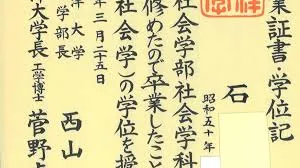 業証書・学位記
石
昭和五十年
社会学部社会学科
修めたので卒業したこ
社会学)の学位を
年三月二十五日
洋大学
学部長 西山
大学長 工学博士 菅野